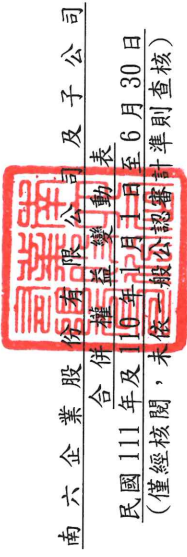 南六企業股份有限公司及子公司
合併權益變動表
民國111年及110年1月1日至6月30日
(僅經核閱，未依一般公認審計準則查核)